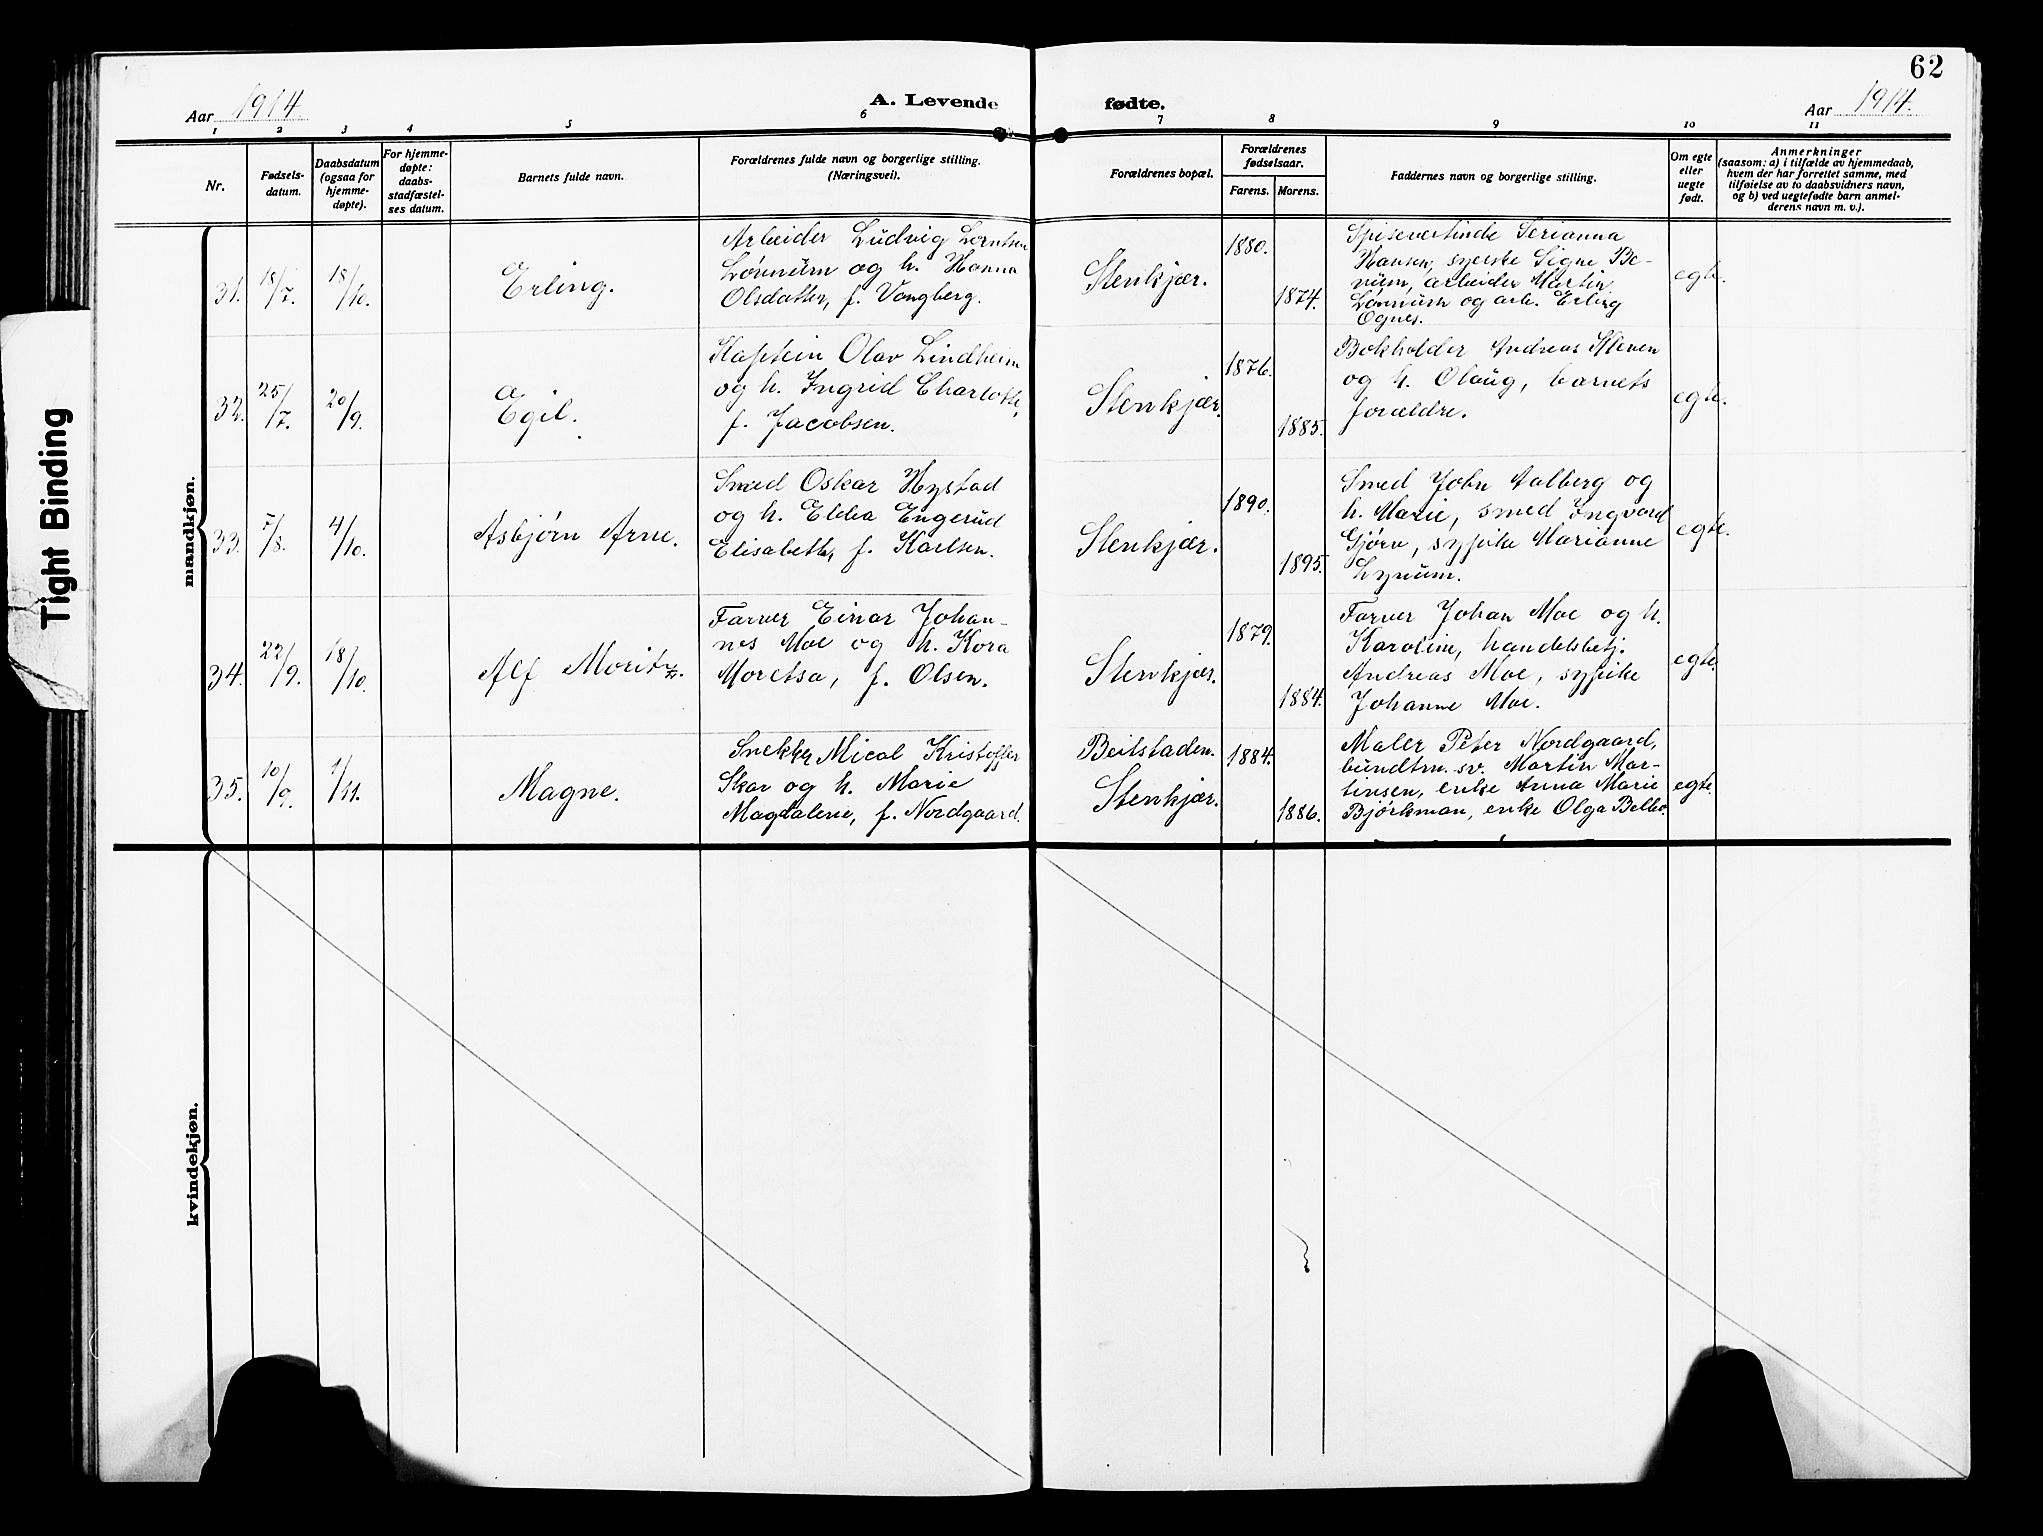 62
Aar 1914.
A. Levende fødte.
Aar 1914.
1 2 3 4 5 6 7 8 9 10 11
Nr.
Fødsels-
datum.
Daabsdatum
(ogsaa for
hjemme-
døpte).
For hjemme-
døpte:
daabs-
stadfæstel-
ses datum.
Barnets fulde navn.
Forældrenes fulde navn og borgerlige stilling.
(Næringsvei).
Forældrenes bopæl.
Forældrenes
fødselsaar.
Farens. Morens.
Faddernes navn og borgerlige stilling.
Om egte
eller
uegte
født.
Anmerkninger
(saasom: a) i tilfælde av hjemmedaab,
hvem der har forrettet samme, med
tilføielse av to daabsvidners navn,
og b) ved uegtefødte barn anmel-
derens navn m. v.).
Tight Binding
mandkjøn.
31. 18/7. 18/10.
Erling.
Arbeider Ludvig Lorntsen
Lønnum og h. Hanna
Olsdatter, f. Vongberg.
Stenkjær.
1880.
1874.
Spisevertinde Serianna
Hansen, syerske Signe Be-
num, arbeider Martin
Lønnum og arb. Erling
Ognes.
egte.
32. 25/7. 20/9.
Egil.
Kaptein Olav Lindheim
og h. Ingrid Charlotte,
f. Jacobsen.
Stenkjær.
1876.
1885.
Bokholder Andreas Kleven
og h. Olaug, barnets
forældre.
egte.
33. 7/8. 4/10.
Asbjørn Arne.
Smed Oskar Hystad
og h. Ebba Engerud
Elisabeth, f. Karlsen.
Stenkjær.
1890.
1895.
Smed John Aalberg og
h. Marie, smed Ingvard
Gjørv, sypike Marianne
Lynum.
egte.
34. 22/9. 18/10.
Alf Moritz.
Farver Einar Johan-
nes Moe og h. Kora
Moretsa, f. Olsen.
Stenkjær.
1879.
1884.
Farver Johan Moe og h.
Karoline, handelsbetj.
Andreas Moe, sypike
Johanne Moe.
egte.
35. 10/9. 1/11.
Magne.
Snekker Micol Kristoffer
Skar og h. Marie
Magdalene, f. Nordgaard.
Beitstaden.
Stenkjær.
1884.
1886.
Maler Peter Nordgaard,
bundtm. sv. Martin Mar-
tinsen, enke Anna Marie
Bjørkman, enke Olga Belbo.
egte.
kvindekjøn.